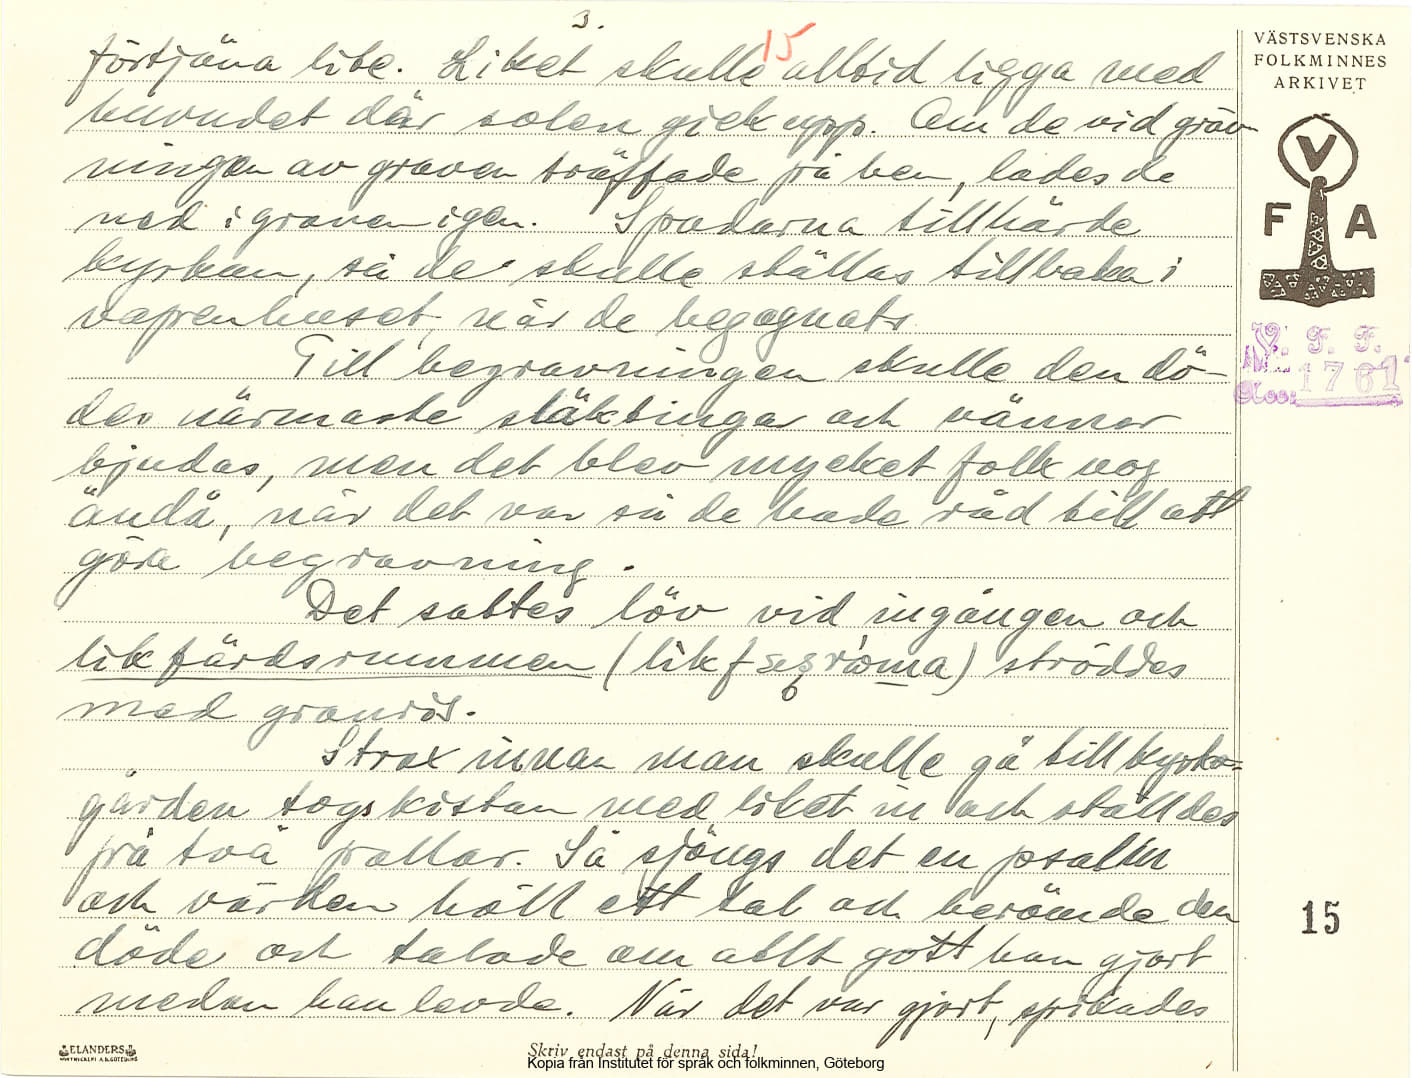 3.
15
förtjäna lite. Liket skulle alltid ligga med
huvudet där solen gick upp. Om de vid gräv-
ningen av graven träffade på ben, lades de
ned i graven igen. Spadarna tillhörde
kyrkan, så de skulle ställas tillbaka i
vapenhuset, när de begagnats
Till begravningen skulle den dö-
des närmaste släktingar och vänner
bjudas, men det blev mycket folk nog
ändå, när det var så de hade råd till att
göra begravning.
Det sattes löv vid ingången och
likfärdsrummen ströddes
med granris.
Strax innan man skulle gå till kyrko=
gården togs kistan med liket in och ställdes
på två pallar. Så sjöngs det en psalm
och värden höll ett tal och berömde den
döde och talade om allt gott han gjort
medan han levde. När det var gjort, spikades
VÄSTSVENSKA
FOLKMINNES
ARKIVET
V
F A
V. F. F.
1761
15
ELANDERS
Skriv endast på denna sida!
Kopia från Institutet för språk och folkminnen, Göteborg